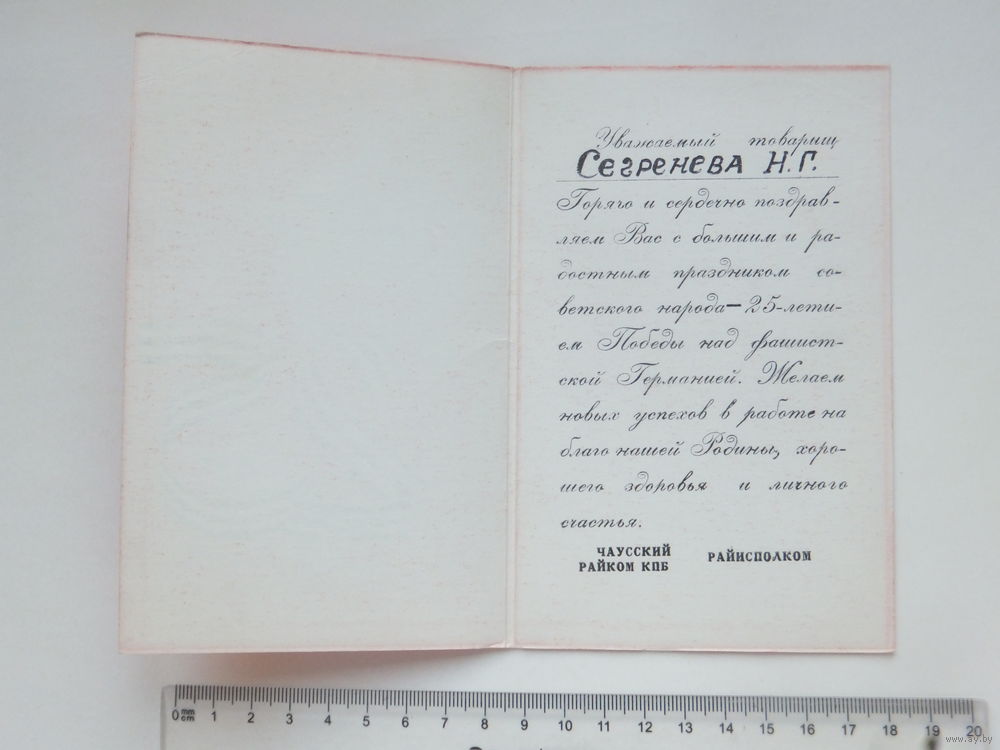 Уважаемый товарищ
Сегренева Н.Г.
Горячо и сердечно поздрав-
ляем Вас с большим и ра-
достным праздником со-
ветского народа — 25-лети-
ем Победы над фашист-
ской Германией. Желаем
новых успехов в работе на
благо нашей Родины, хоро-
шего здоровья и личного
счастья.
ЧАУССКИЙ
РАЙКОМ КПБ РАЙИСПОЛКОМ
0 mm cm 1 2 3 4 5 6 7 8 9 10 11 12 13 14 15 16 17 18 19 20
www.ay.by